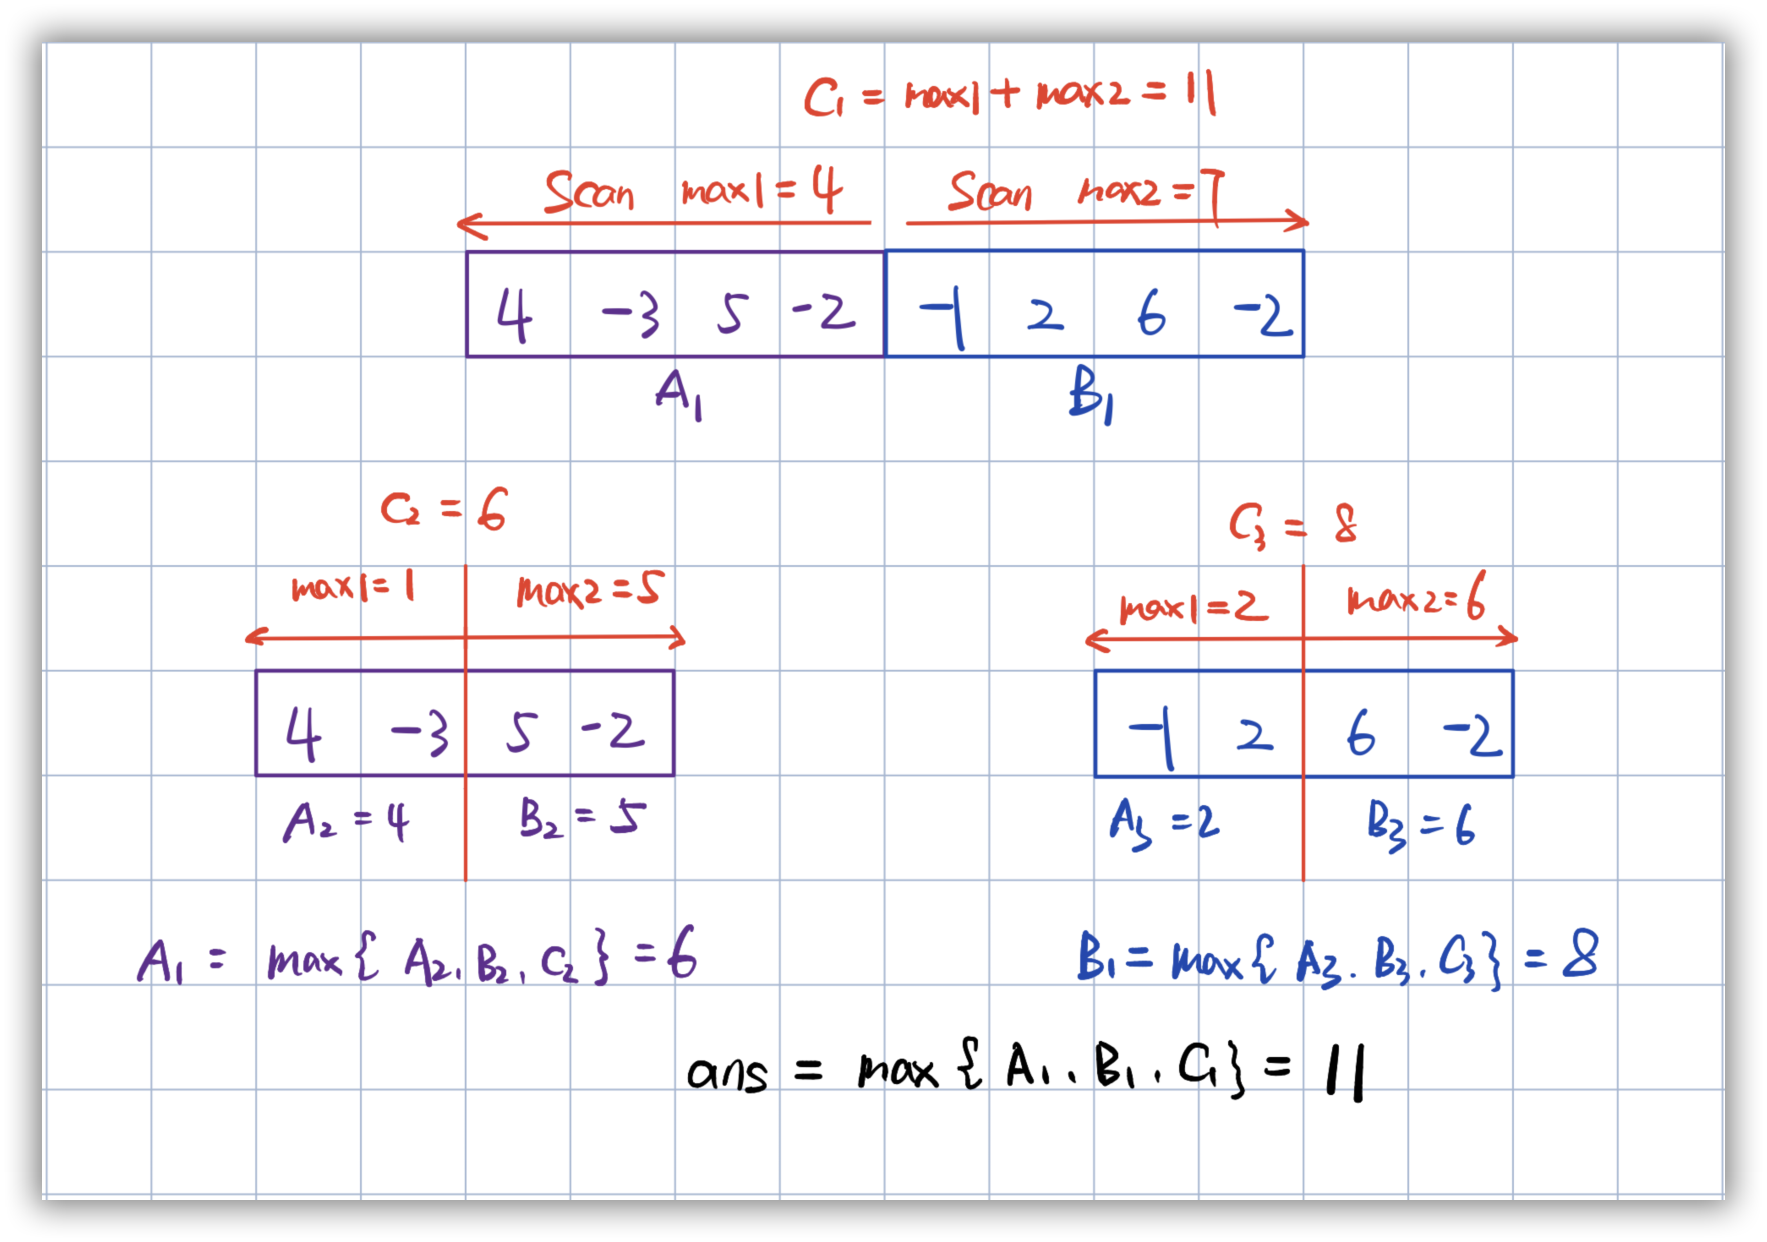 C₁ = max1 + max2 = 11
Scan max1 = 4 Scan max2 = 7
4 -3 5 -2 -1 2 6 -2
A₁ B₁
C₂ = 6 C₃ = 8
max1 = 1 max2 = 5 max1 = 2 max2 = 6
4 -3 5 -2 -1 2 6 -2
A₂ = 4 B₂ = 5 A₃ = 2 B₃ = 6
A₁ = max{ A₂, B₂, C₂ } = 6 B₁ = max{ A₃. B₃, C₃ } = 8
ans = max { A₁, B₁, C₁ } = 11